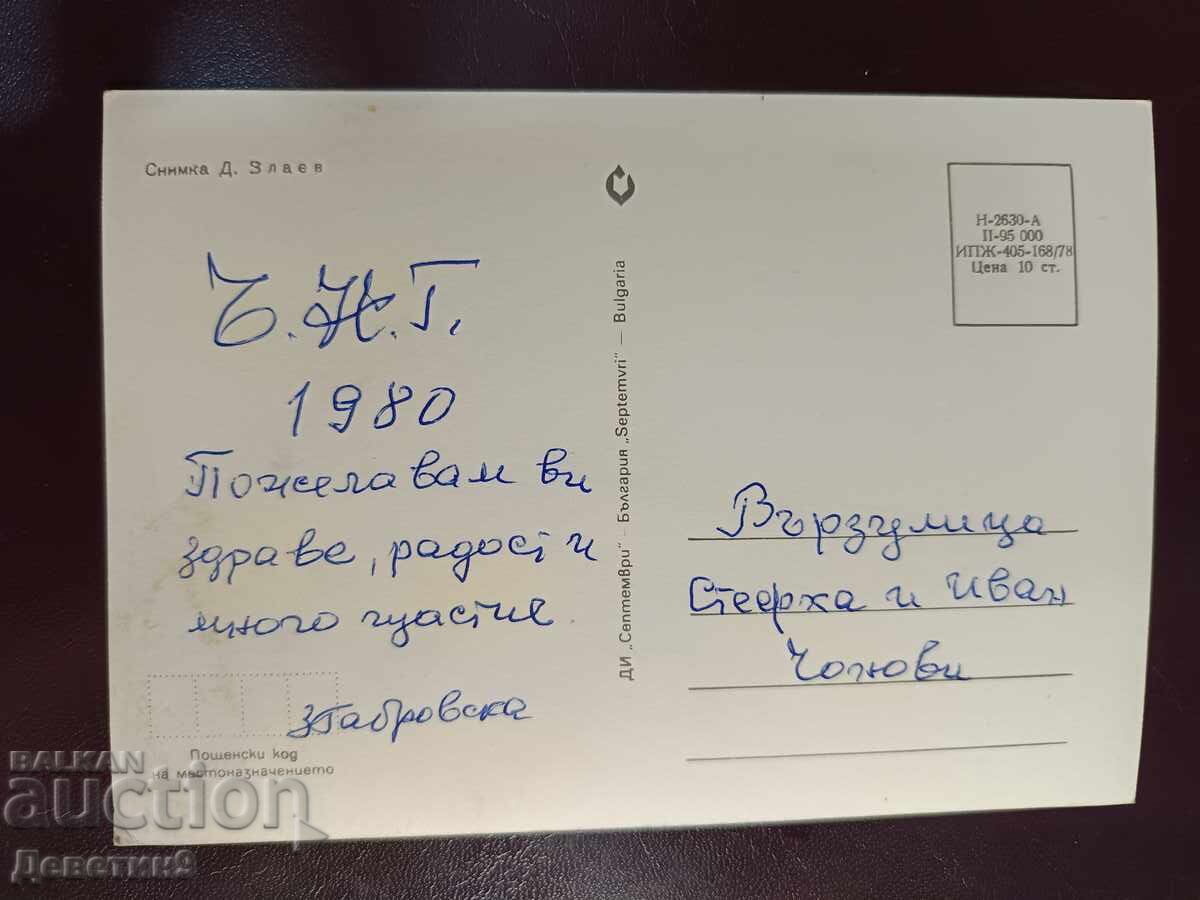 Снимка Д. Злаев
Ч.Н.Г.
1980
Пожелавам ви
здраве, радост и
много щастие.
Пощенски код
на местоназначението
ДИ „Септември" — България „Septemvri" — Bulgaria
Н-2630-А
II-95 000
ИПЖ-405-168/78
Цена 10 ст.
Вързулица
и Иван
BALKAN
auction
Деветин9